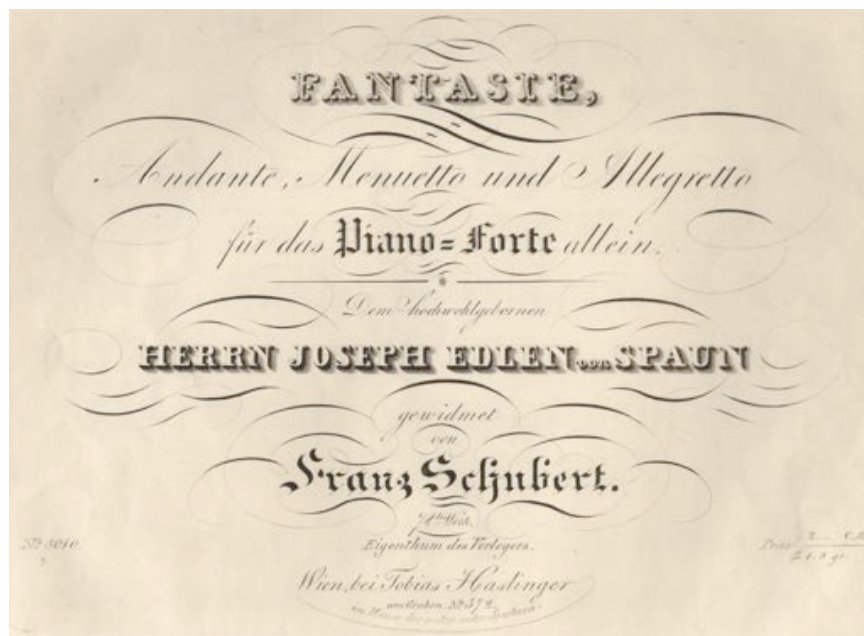 FANTASIE,
Andante, Menuetto und Allegretto
für das Piano=Forte allein.
Dem hochwohlgebornen
HERRN JOSEPH EDLEN von SPAUN
gewidmet
von
Franz Schubert.
78tes Werk.
Eigenthum des Verlegers.
Wien, bei Tobias Haslinger
am Graben No. 572.